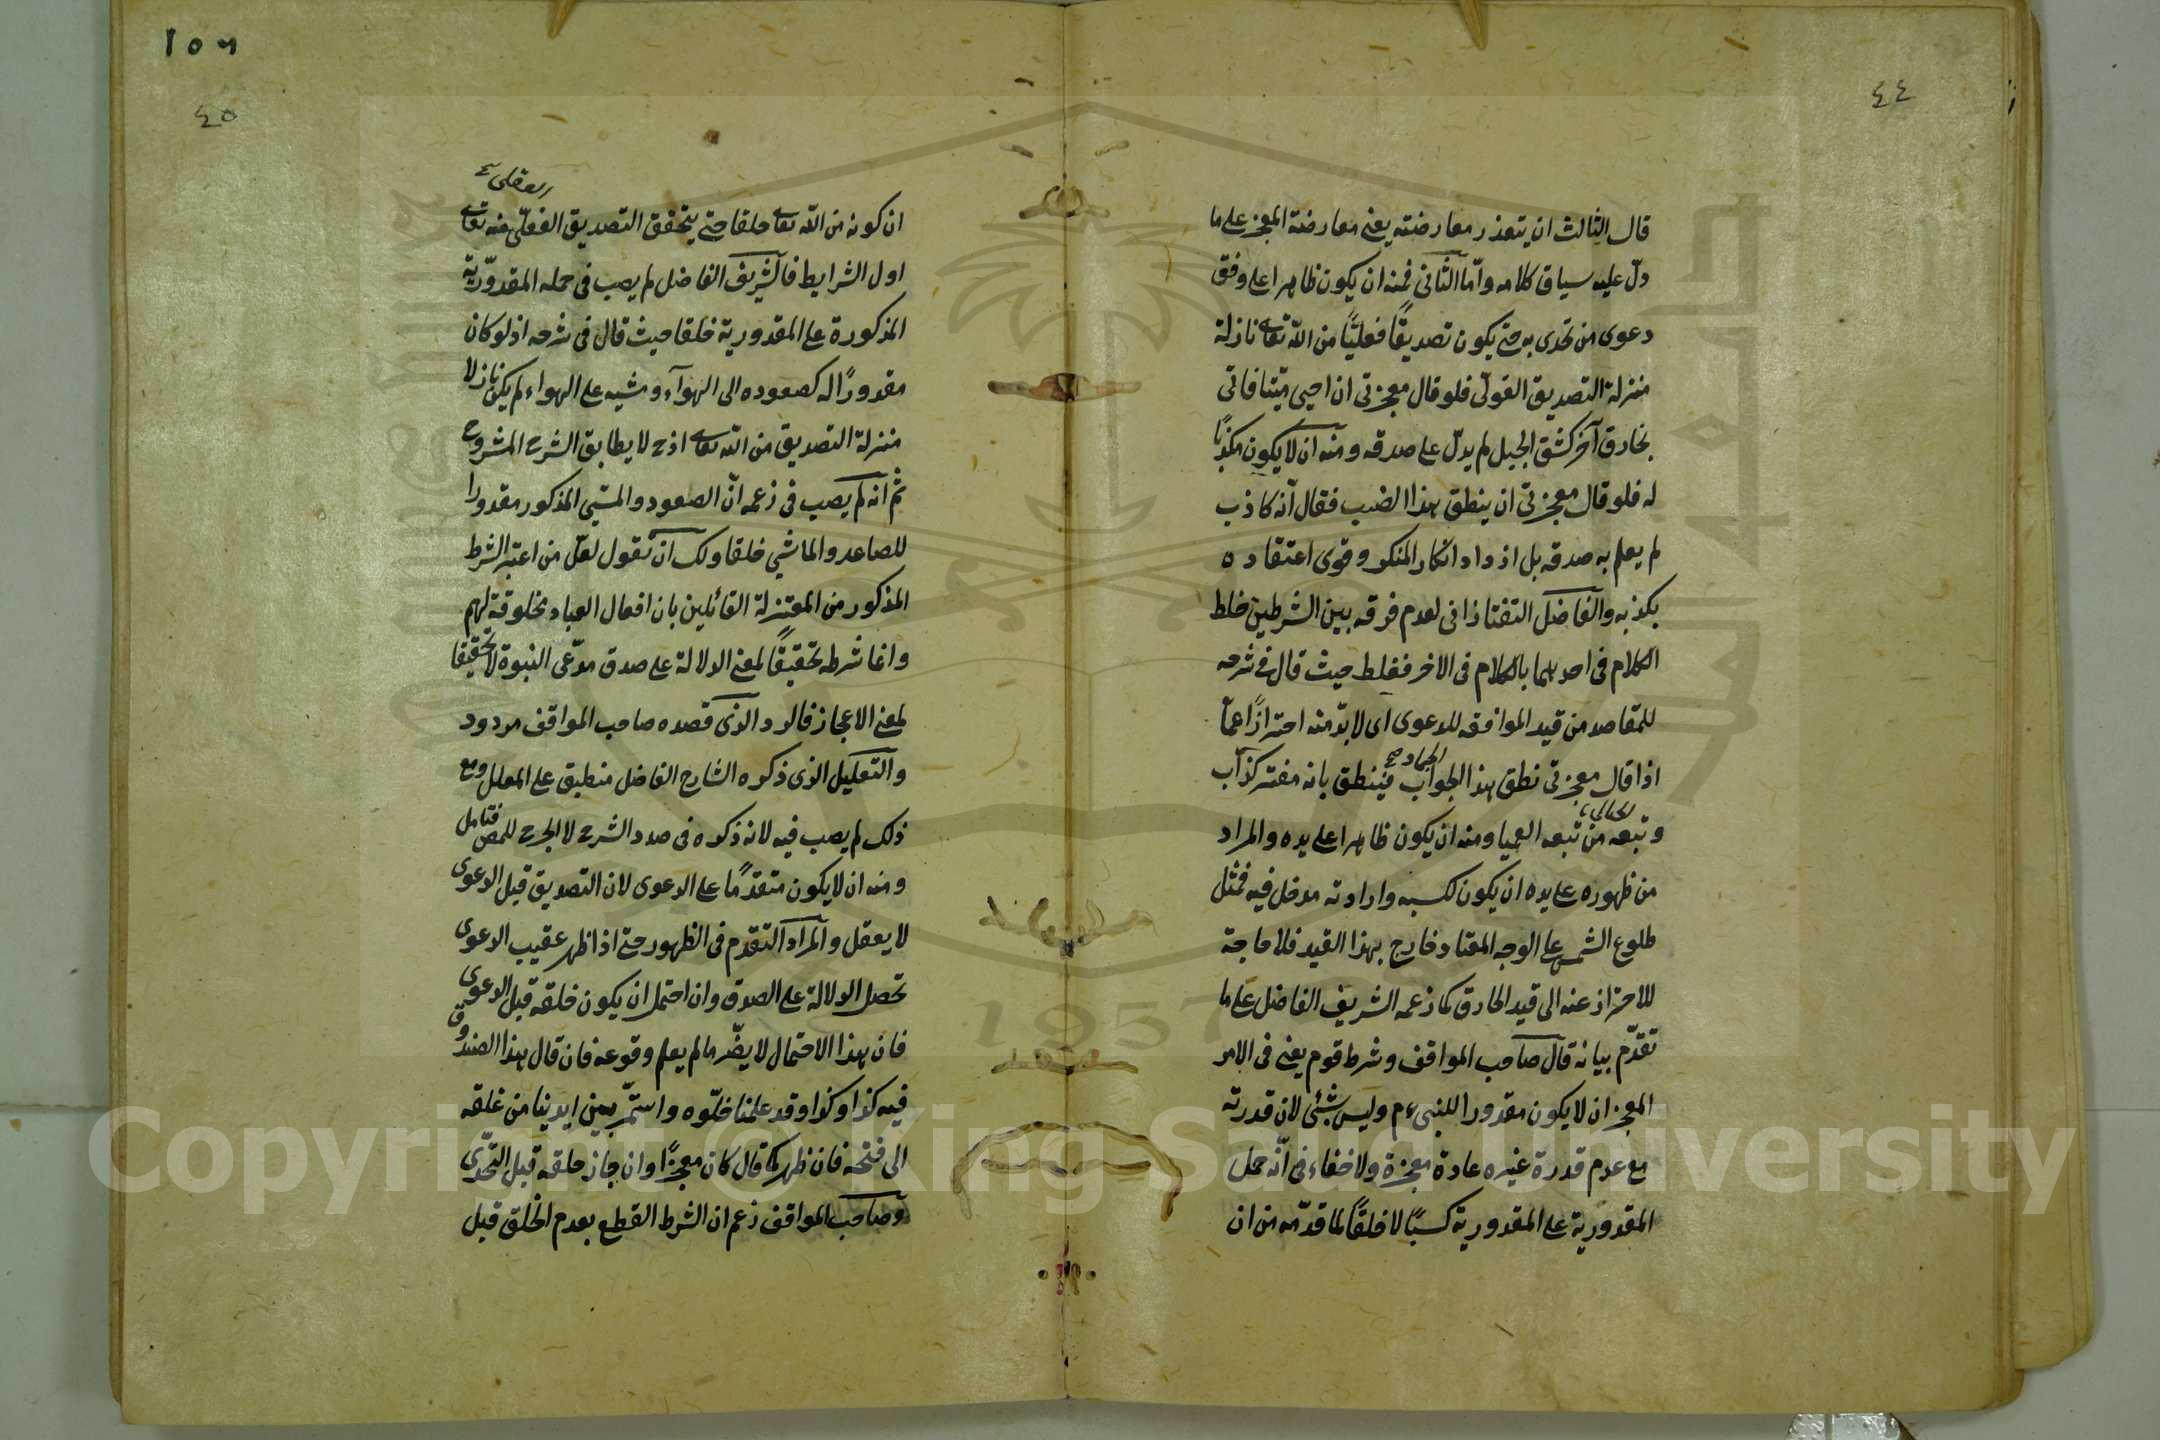 ٤٤
قال الثالث ان يتعذر معارضته يعنى معارضة المعجز على ما
دلّ عليه سياق كلامه وامّا الثانى فمنه ان يكون ظاهرا على وفق
دعوى من تحدى به حتى يكون تصديقًا فعليًّا من الله تعا نازلة
منزلة التصديق القولى فلو قال معجزتى ان احيى ميّتا فاتى
بخارق آخر كشق الجبل لم يدلّ على صدقه ومنه ان لا يكون مكذبًا
له فلو قال معجزتى ان ينطق هذا الضب فقال انّه كاذب
لم يعلم به صدقه بل ازداد انكار المنكر وقوى اعتقاده
بكذبه والفاضل التفتازانى لعدم فرقه بين الشرطين خلط
الكلام فى احديهما بالكلام فى الاخر فغلط حيث قال فى شرحه
للمقاصد من قيد الموافقه للدعوى اى لابدّ منه احترازًا عمّا
اذا قال معجزتى نطق هذا الجواب فينطق بانه مفتر كذّاب
الجماد صح
وتبعه من تبعه العميا ومنه ان يكون ظاهرا على يده والمراد
من ظهوره على يده ان يكون لكسبه وارادته مدخل فيه فمثل
طلوع الشمس على الوجه المعتاد خارج بهذا القيد فلا حاجة
للاحتراز عنه الى قيد الخارق كما زعمه الشريف الفاضل على ما
تقدّم بيانه قال صاحب المواقف وشرط قوم يعنى فى الامر
المعجز ان لا يكون مقدورا للنبىءم وليس بشئى لان قدرته
مع عدم قدرة غيره عادة معجزة ولا خفاء فى انّه حمل
المقدورية على المقدورية كسبًا لا خلقًا لما قدّمه من ان
١٥٦
٤٥
ان كونه من الله تعا خلقا حتى يتحقق التصديق الفعلى منه تعا
اول الشرايط فالشريف الفاضل لم يصب فى حمله المقدوريّة
المذكورة على المقدورية خلقا حيث قال فى شرحه اذ لو كان
مقدورًا له كصعوده الى الهوآء ومشيه على الهواء لم يكن نازلا
منزلة التصديق من الله تعا اذ ح لا يطابق الشرح المشروح
ثم انه لم يصب فى زعمه انّ الصعود والمشى المذكور مقدورا
للصاعد والماشى خلقا ولك ان تقول لعل من اعتبر الشرط
المذكور من المعتزلة القائلين بان افعال العباد مخلوقة لهم
وانما شرطه تحقيقًا لمعنى الدلالة على صدق مدّعى النبوة لا تحقيقا
لمعنى الاعجاز فالرد الذى قصده صاحب المواقف مردود
والتعليل الذى ذكره الشارح الفاضل منطبق على المعلل ومع
ذلك لم يصب فيه لانه ذكره فى صدد الشرح لا الجرح للمص فتامل
ومنه ان لا يكون متقدّمًا على الدعوى لان التصديق قبل الدعوى
لا يعقل والمراد التقدم فى الظهور حتى اذا ظهر عقيب الدعوى
تحصل الدلالة على الصدق وان احتمل ان يكون خلقه قبل الدعوى
فان هذا الاحتمال لا يضّر ما لم يعلم وقوعه فان قال هذا الصندوق
فيه كذا وكذا وقد علمنا خلّوه واستمّر بين ايدينا من غلقه
الى فتحه فان ظهر كما قال كان معجزًا وان جاز خلقه قبل التحدّى
وصاحب المواقف زعم ان الشرط القطع بعدم الخلق قبل
Copyright © King Saud University
1957